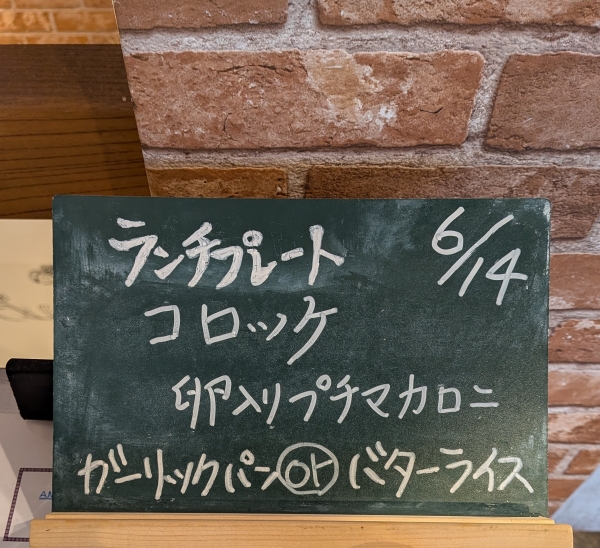 ランチプレート 6/14
コロッケ
卵入りプチマカロニ
ガーリックパン or バターライス